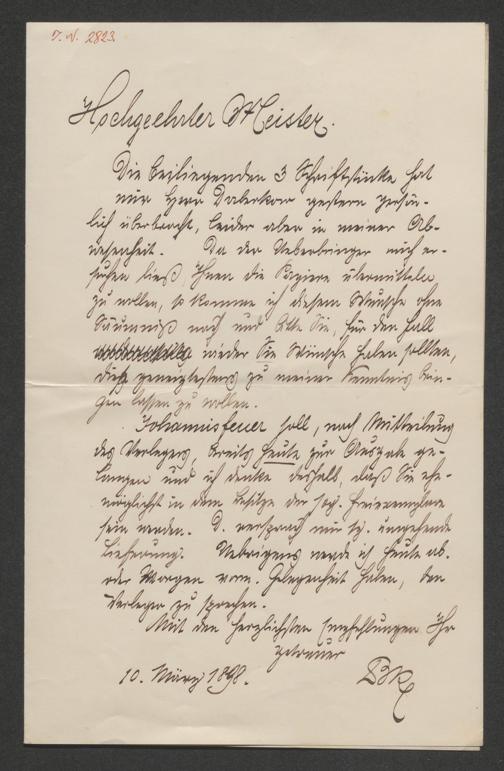 I. N. 2823
Hochgeehrter Meister.
Die beiliegenden 3 Schriftstücke hat
mir Herr gestern persön-
lich überbracht, leider aber in meiner Ab-
wesenheit. Da der Ueberbringer mich er-
suchen ließ, Ihnen die Papiere übermitteln
zu wollen, so komme ich diesem Wunsche ohne
Säumniß nach und bitte Sie, für den Fall
wieder Sie Wünsche haben sollten,
geneigtestens zu meiner Kenntnis brin-
gen lassen zu wollen.
Johannisfeuer soll, nach Mittheilung
des Verlegers, bereits heute zur Ausgabe ge-
langen und ich denke deshalb, daß Sie ehe-
möglichst in dem Besitze der Freiexemplare
sein werden. D. versprach mir umgehende
Lieferung. Uebrigens werde ich heute ab.
oder Morgen vorm. Gelegenheit haben, den
Verleger zu sprechen.
Mit den herzlichsten Empfehlungen Ihr
getreuer
10. März 1898.